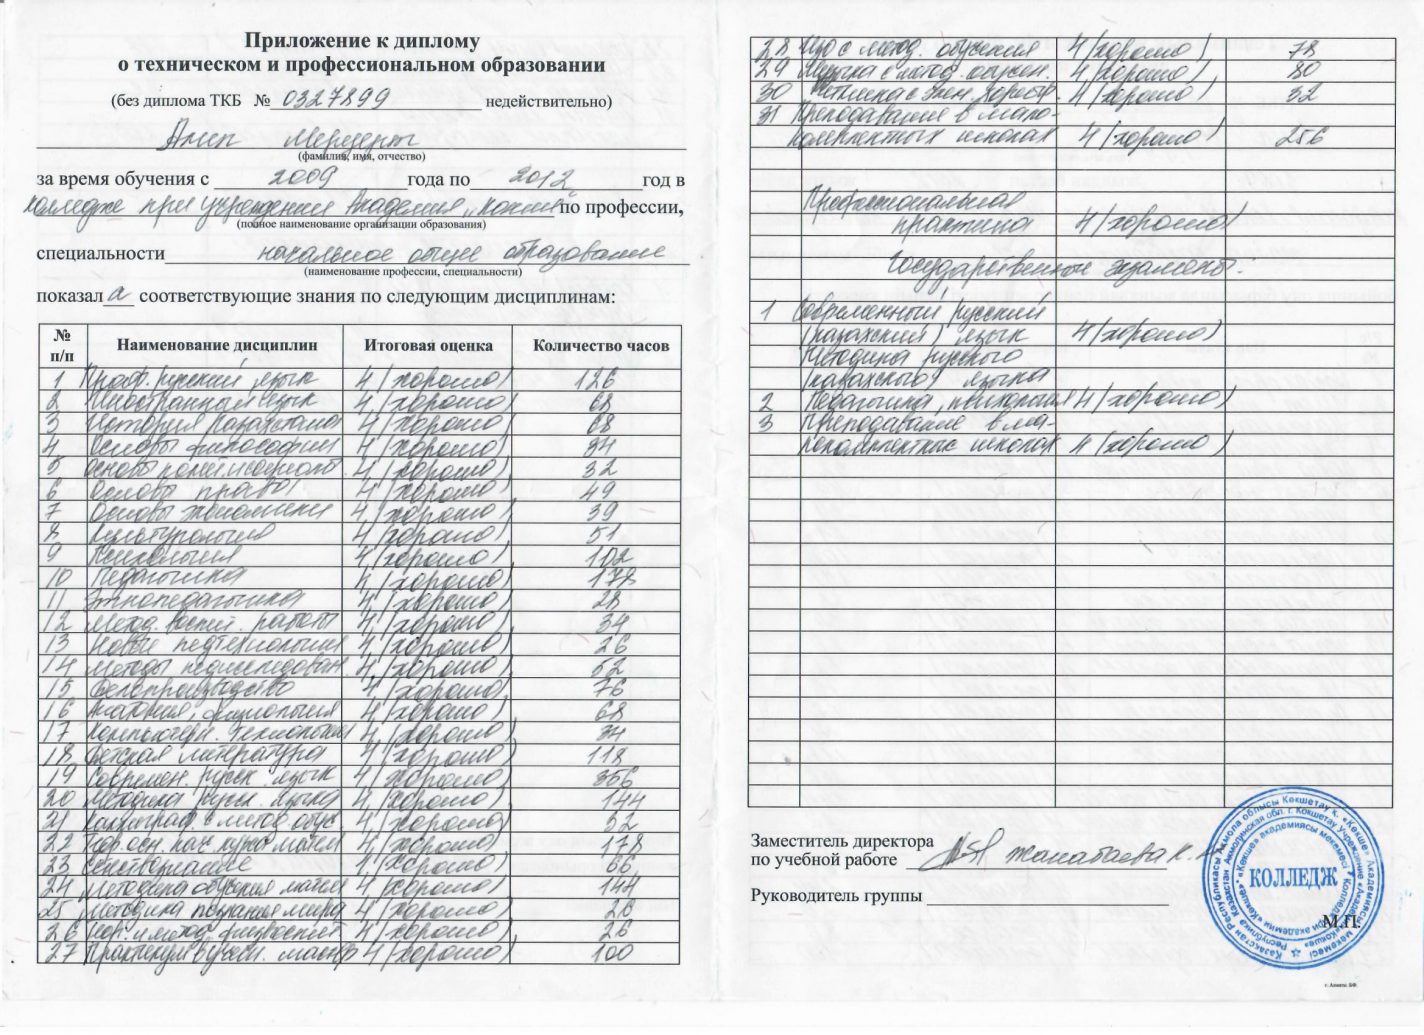 Приложение к диплому
о техническом и профессиональном образовании
(без диплома ТКБ № 0327899 недействительно)
(фамилия, имя, отчество)
за время обучения с 2009 года по 2012 год в
колледже при учреждении Академия "Кокше" по профессии,
(полное наименование организации образования)
специальности начальное общее образование
(наименование профессии, специальности)
показала соответствующие знания по следующим дисциплинам:
№ п/п Наименование дисциплин Итоговая оценка Количество часов
1 Проф. русский язык 4 (хорошо) 126
2 Иностранный язык 4 (хорошо) 68
3 История Казахстана 4 (хорошо) 68
4 Основы философии 4 (хорошо) 34
5 Основы 4 (хорошо) 32
6 Основы права 4 (хорошо) 49
7 Основы экономики 4 (хорошо) 39
8 Культурология 4 (хорошо) 51
9 Психология 4 (хорошо) 102
10 Педагогика 4 (хорошо) 178
11 Этнопедагогика 4 (хорошо) 28
12 Метод. воспит. работы 4 (хорошо) 34
13 Новые педтехнологии 4 (хорошо) 26
14 Методы педисследован. 4 (хорошо) 52
15 Делопроизводство 4 (хорошо) 76
16 Анатомия, физиология 4 (хорошо) 68
17 Компьютерн. технологии 4 (хорошо) 34
18 Детская литература 4 (хорошо) 118
19 Современ. русск. язык 4 (хорошо) 366
20 Методика русск. языка 4 (хорошо) 144
21 Каллиграф. с метод. обуч. 4 (хорошо) 32
22 Теор. осн. нач. курса матем 4 (хорошо) 178
23 Естествознание 4 (хорошо) 66
24 Методика обучения матем 4 (хорошо) 144
25 Методика познания мира 4 (хорошо) 26
26 Теор. и метод. физвоспит 4 (хорошо) 26
27 Практикум в учебн. мастер 4 (хорошо) 100
28 ИЗО с метод. обучения 4 (хорошо) 78
29 Музыка с метод. обучен. 4 (хорошо) 80
30 4 (хорошо) 32
31 Преподавание в мало-
комплектных школах 4 (хорошо) 256
Профессиональная
практика 4 (хорошо)
Государственные экзамены:
1 Современный русский
(казахский) язык 4 (хорошо)
Методика русского
(казахского) языка
2 Педагогика, психология 4 (хорошо)
3 Преподавание в ма-
локомплектных школах 4 (хорошо)
Заместитель директора
по учебной работе Жанабаева К.
Руководитель группы
КОЛЛЕДЖ
М.П.
г. Алматы. БФ.